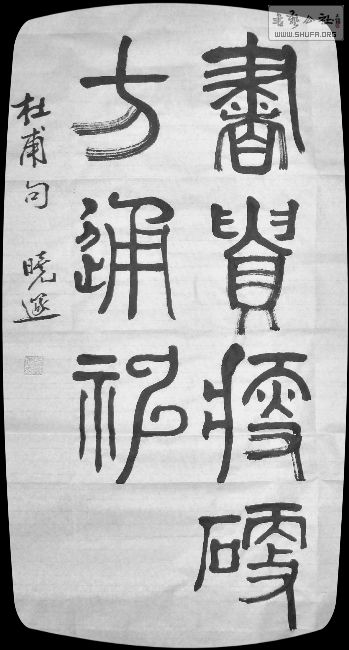 書貴瘦硬
方通神
杜甫句 曉
书艺公社
WWW.SHUFA.ORG